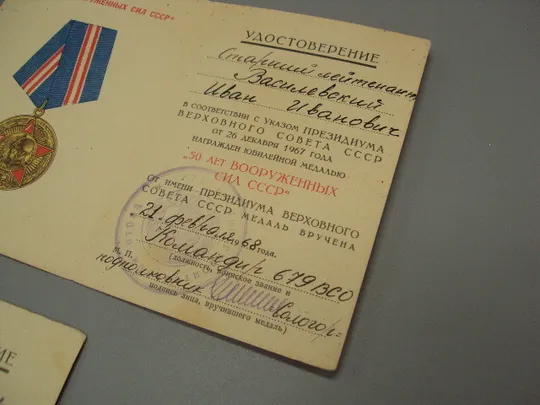 УЖЕННЫХ СИЛ СССР"
УДОСТОВЕРЕНИЕ
Старший лейтенант
Василевский
Иван Иванович
В СООТВЕТСТВИИ С УКАЗОМ ПРЕЗИДИУМА
ВЕРХОВНОГО СОВЕТА СССР
ОТ 26 ДЕКАБРЯ 1967 ГОДА
НАГРАЖДЕН ЮБИЛЕЙНОЙ МЕДАЛЬЮ
„50 ЛЕТ ВООРУЖЕННЫХ
СИЛ СССР"
ОТ ИМЕНИ ПРЕЗИДИУМА ВЕРХОВНОГО
СОВЕТА СССР МЕДАЛЬ ВРУЧЕНА
„21„ февраля 1968 года.
Командир 679
М. П. (должность, воинское звание и
подполковник
подпись лица, вручившего медаль)
ИЕ